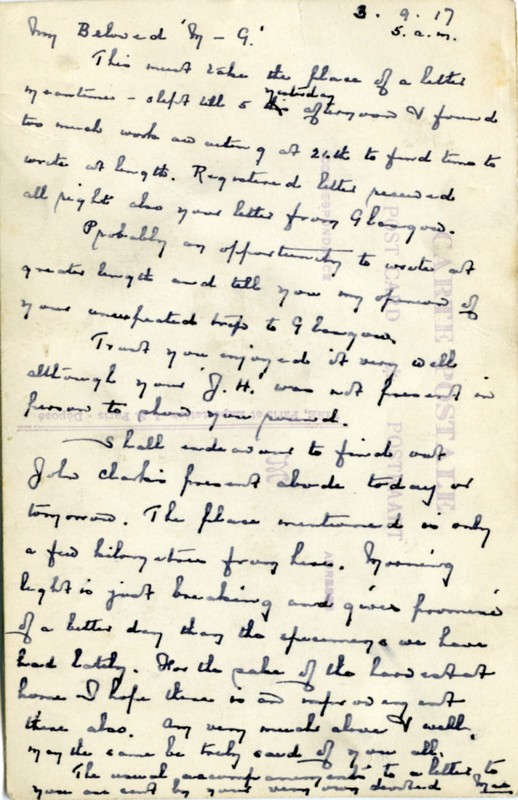 3.9.17
5.a.m.
My Beloved 'M-G.'
This must take the place of a letter
yesterday
meantime - slept till 5 afternoon & found
too much work at 26th to find time to
write at length. Registered letter received
all right also your letter from Glasgow.
Probably an opportunity to write at
greater length and tell you my opinion of
your unexpected trip to Glasgow.
Trust you enjoyed it very well
although your 'J.H.' was not present in
person to show you round.
Shall endeavour to find out
John Clark's present abode today or
tomorrow. The place mentioned is only
a few kilometres from here. Morning
light is just breaking and gives promise
of a better day than the specimens we have
had lately. For the sake of the harvest at
home I hope there is an improvement
there also. Am very much alive & well,
may the same be truly said of you all.
The usual accompaniments to a letter to
you are sent by your very own devoted
CARTE POSTALE
POST CARD
CORRESPONDENCE
POSTKAART
ADRESSE
Paris - Déposé